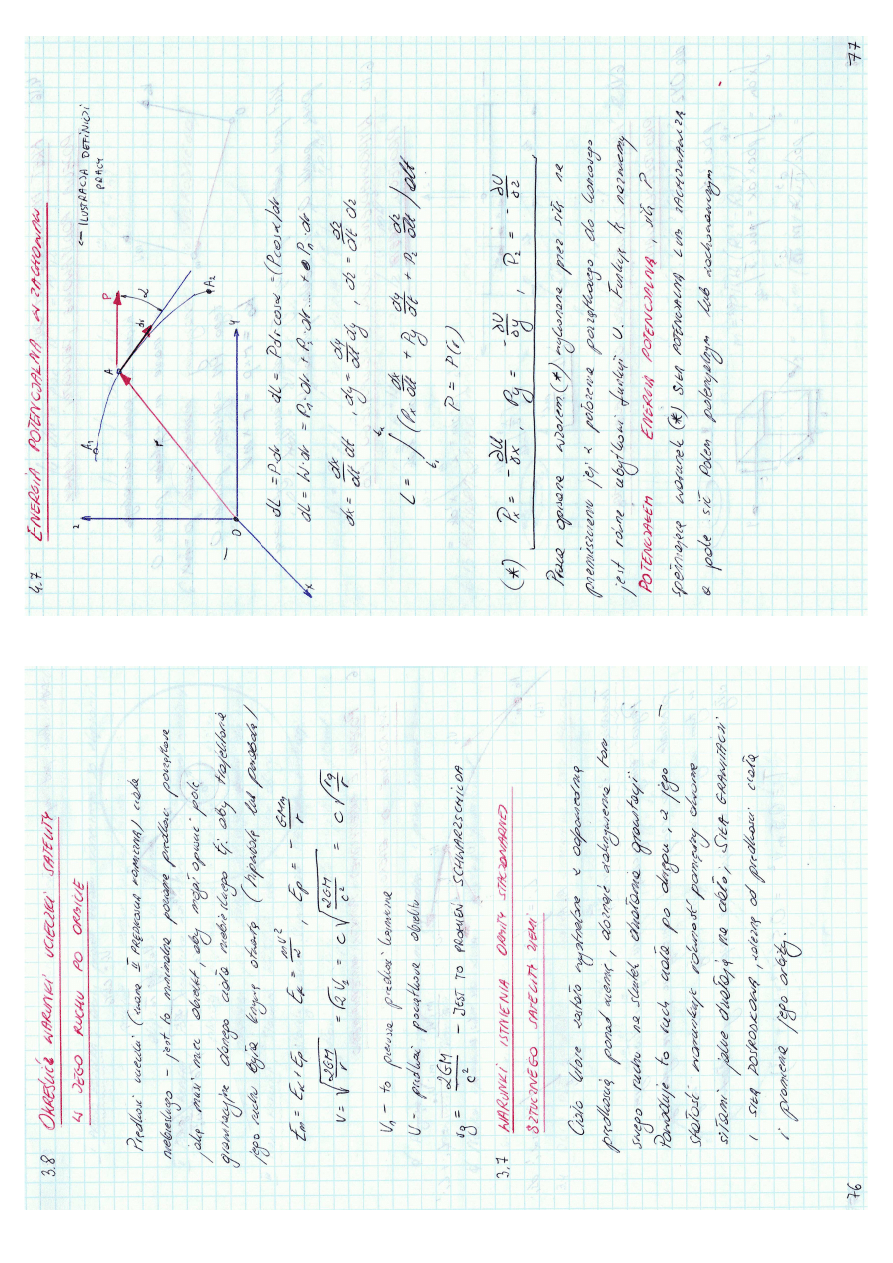 3.8 OKREŚLIĆ WARUNKI UCIECZKI SATELITY
W JEGO RUCHU PO ORBICIE
Prędkość ucieczki (inaczej II PRĘDKOŚĆ KOSMICZNA) ciała
niebieskiego – jest to minimalna prędkość początkowa
jaką musi mieć obiekt, aby mógł opuścić pole
grawitacyjne danego ciała niebieskiego tj. aby
jego ruchu była krzywą otwartą (hiperbolą lub parabolą)
Em = Ek + Ep   Ek = mv²/2 , Ep = - GMm/r
V = √(2GM/r) = √2 V₁ = c √(2GM/c²/r) = c √(rg/r)
V₁ – to pierwsza prędkość kosmiczna
V – prędkość początkowa obiektu
rg = 2GM/c² – JEST TO PROMIEŃ SCHWARZSCHILDA
3.7 WARUNKI ISTNIENIA ORBITY STACJONARNEJ
SZTUCZNEGO SATELITY ZIEMI
Ciało które zostało wystrzelone z odpowiednią
prędkością ponad ziemię, doznaje zakrzywienia toru
swego ruchu na skutek działania grawitacji
Powoduje to ruch ciała po okręgu, a jego
stałość warunkuje równość pomiędzy dwoma
siłami jakie działają na ciało, SIŁĄ GRAWITACJI
i SIŁĄ DOŚRODKOWĄ, zależną od prędkości ciała
i promienia jego orbity.
76
4.7 ENERGIA POTENCJALNA W ZACHOWAW
← ILUSTRACJA DEFINICJI
PRACY
z
A₁
A
P
dr
α
A₂
r
O
y
x
dL = P·dr   dL = P dr cosα = (P cosα) dr
dL = W·dr = P₁·dr + P₂·dr ... + Pn·dr
dx = dx/dt dt , dy = dy/dt dy , dz = dz/dt dz
L = ∫ t₁ t₂ (Px dx/dt + Py dy/dt + Pz dz/dt) dt
P = P(r)
(*) Px = - ∂U/∂x , Py = - ∂U/∂y , Pz = - ∂U/∂z
Praca opisana wzorem (*) wykonana przez siłę na
przemieszczeniu jej z położenia początkowego do końcowego
jest równe ubytkowi funkcji U. Funkcję tę nazwiemy
POTENCJAŁEM ENERGIĄ POTENCJALNĄ, siłę P
spełniającą warunek (*) SIŁĄ POTENCJALNĄ LUB ZACHOWAWCZĄ
a pole sił Polem potencjalnym lub zachowawczym
77